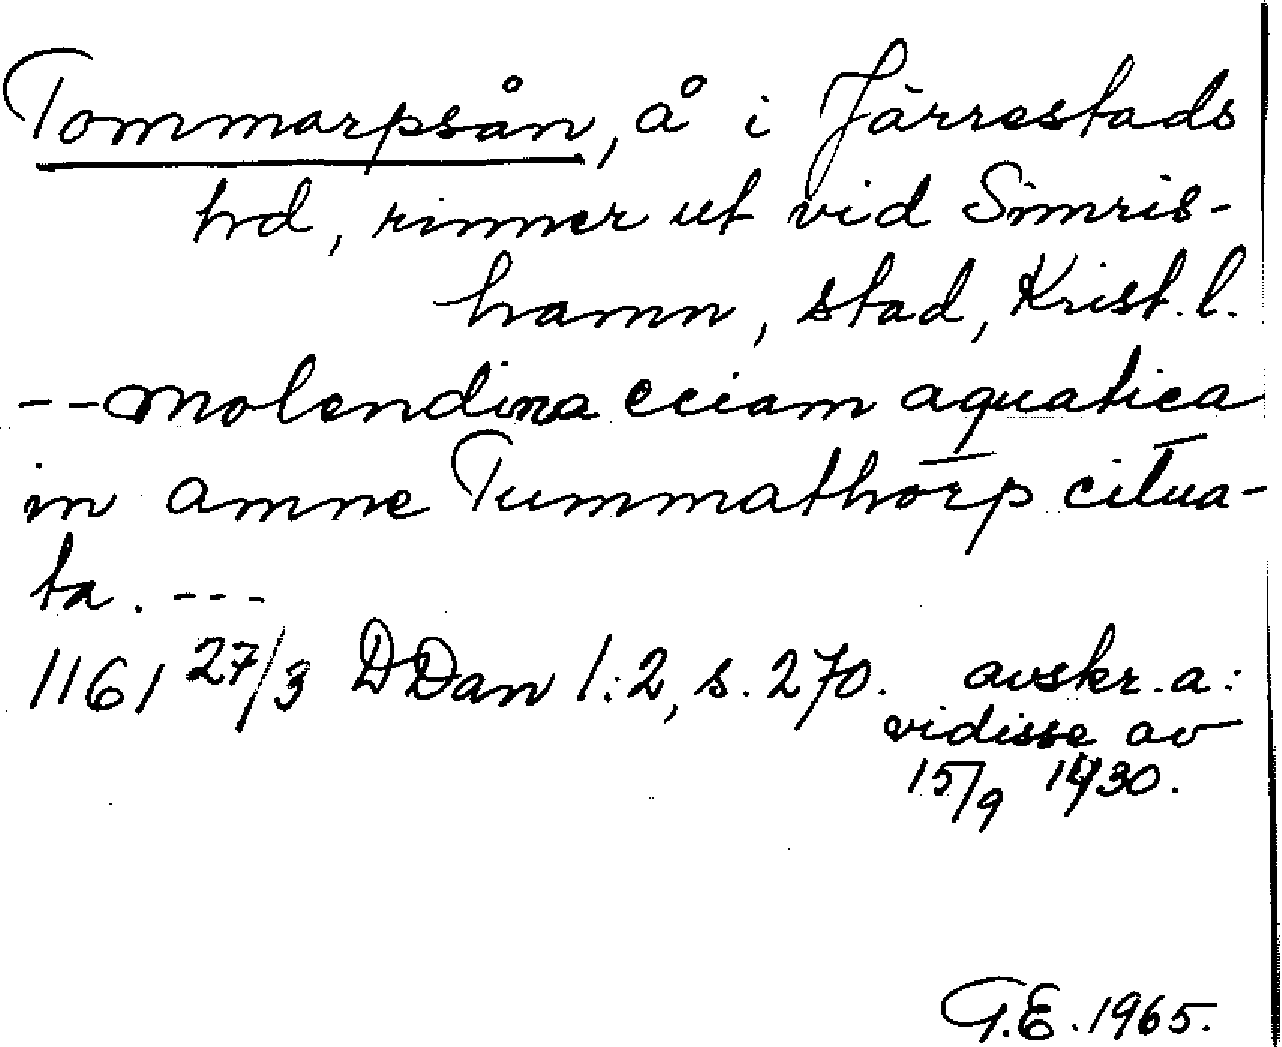 Tommarpsån, å i Järrestads
hd, rinner ut vid Simris-
hamn, stad, Krist. l.
-- molendina eciam aquatica
in amne Tummathorp citua-
ta. ---
1161 27/3 DDan 1:2, s. 270. avskr. a:
vidisse av
15/9 1430.
G.E. 1965.